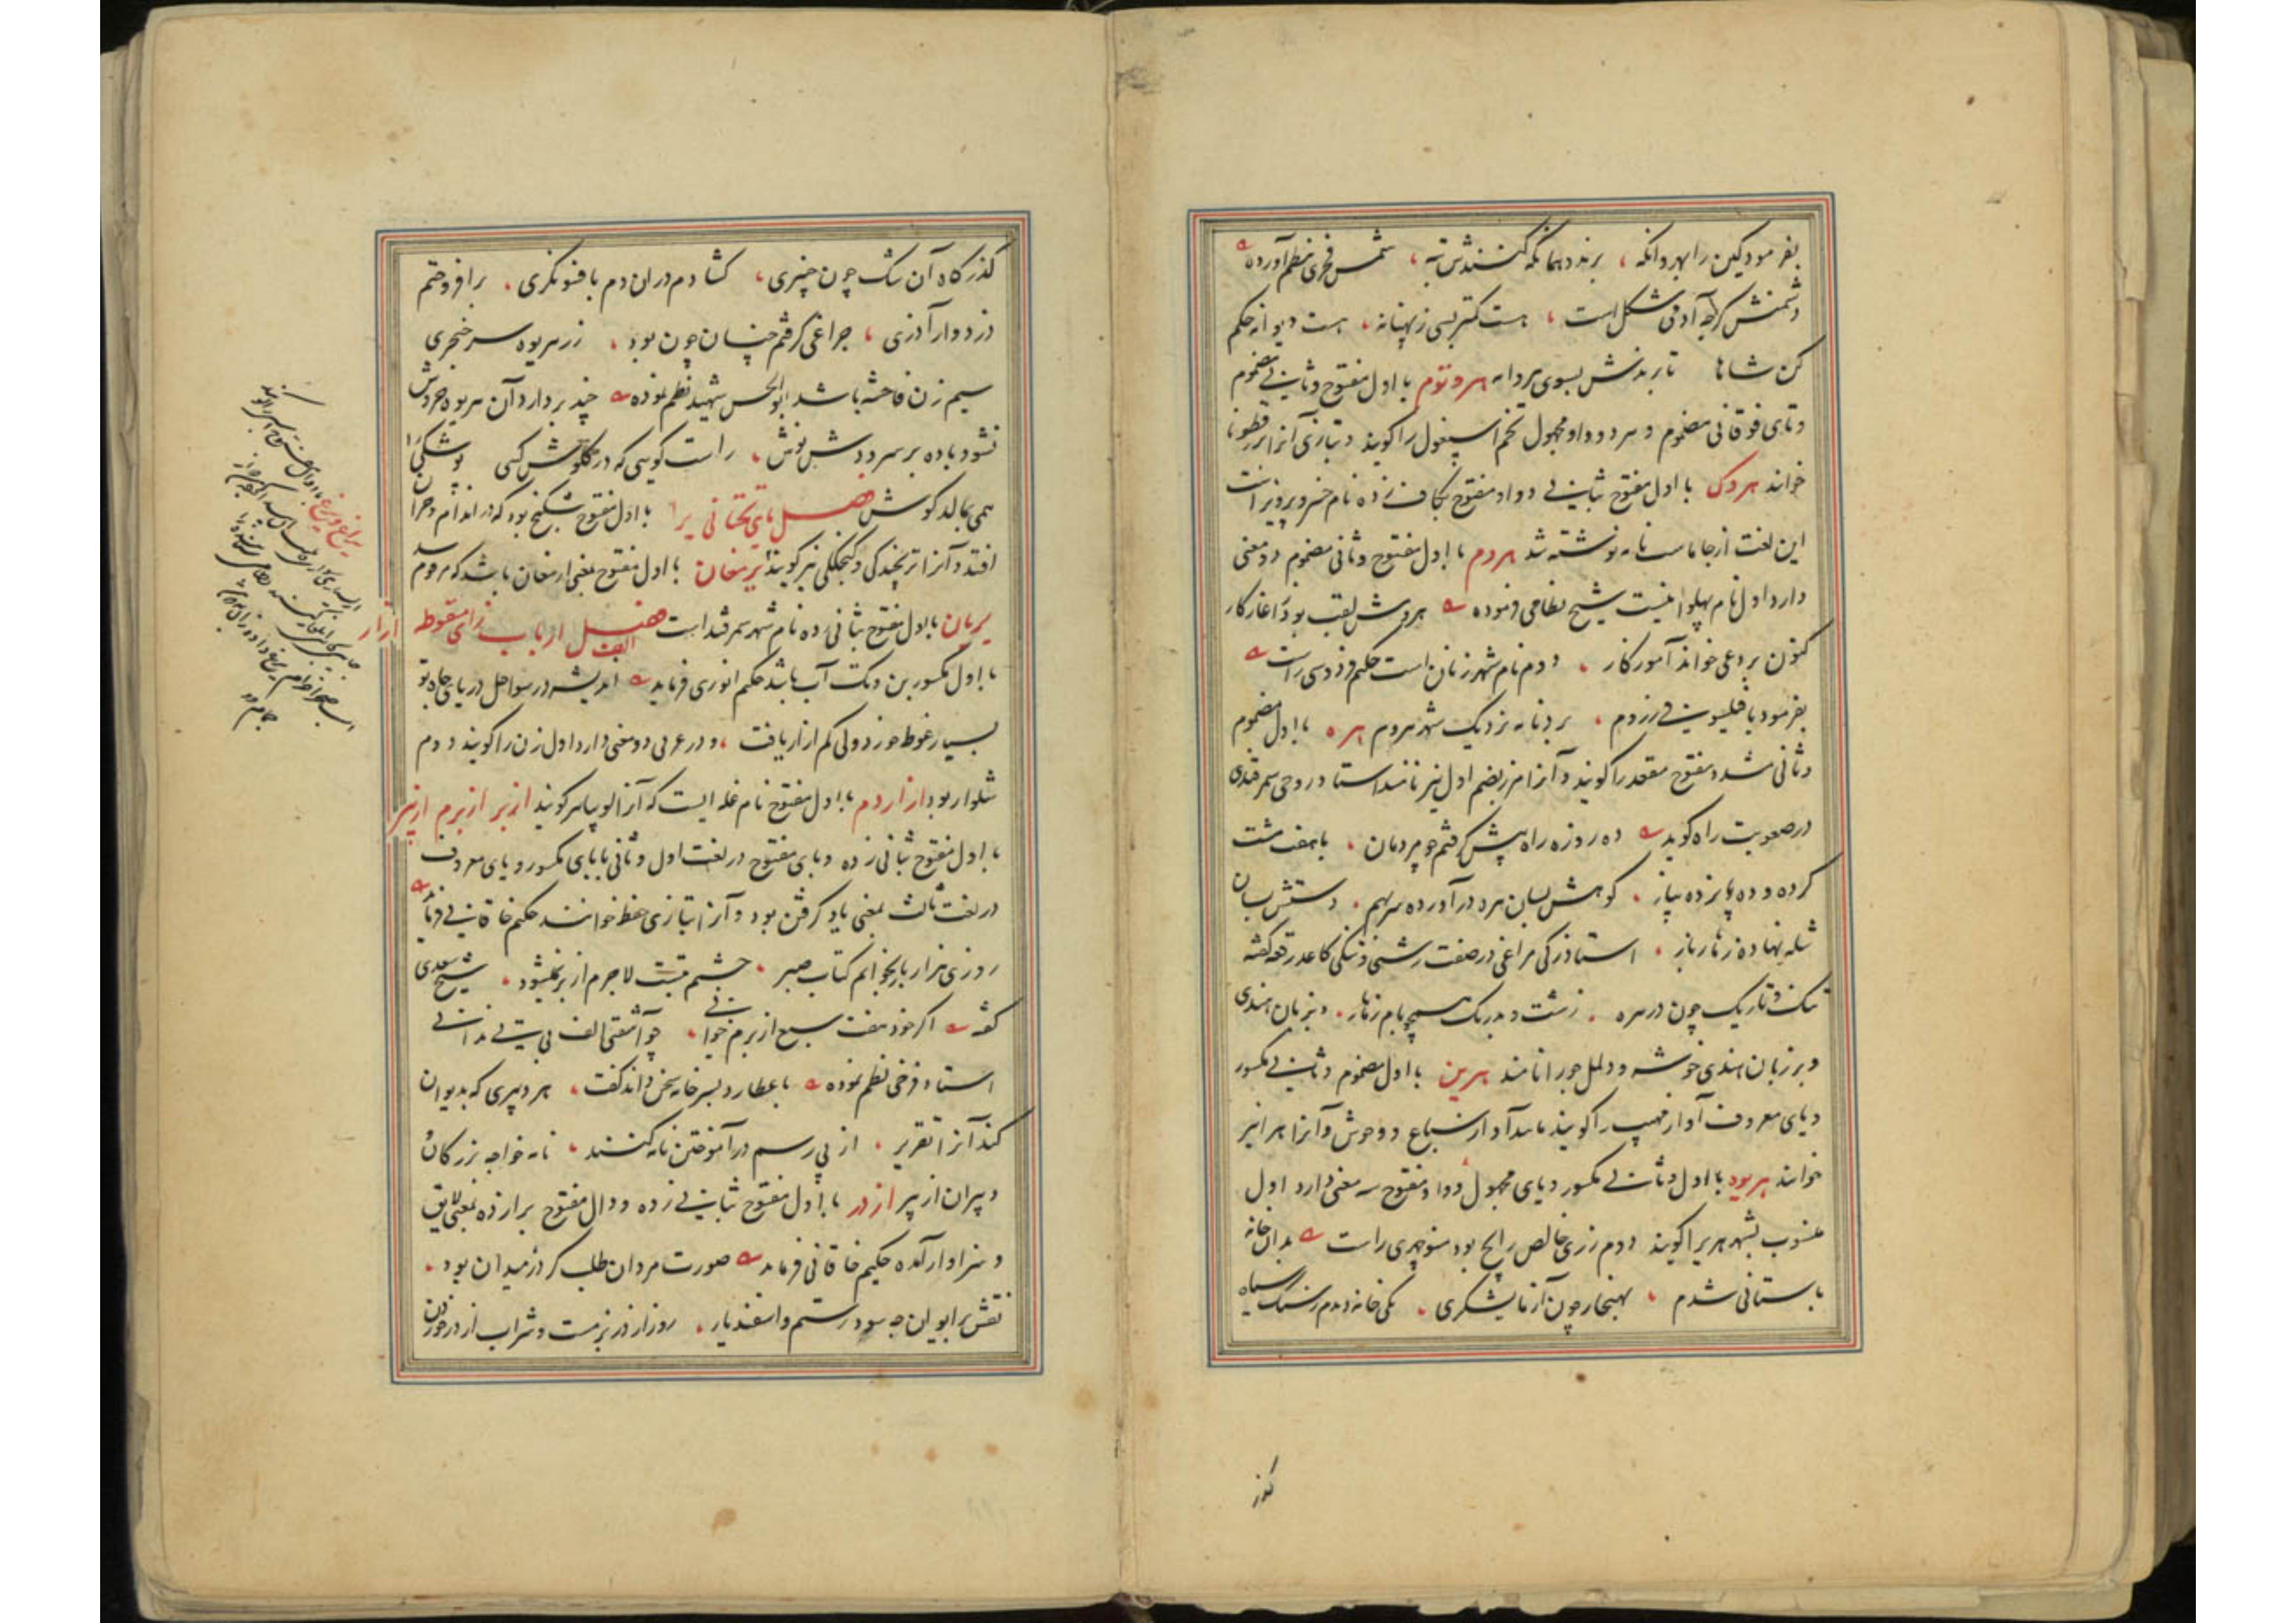 بفرمود کین را بهروانکه ، برند و همانکه کنندش تبه ، شمس فخری نظم آورده
دشمنش کرچه آدمی شکل است ، هست کمتر بسی ز بهنانه ، هست دیوانه حکم
کن شاها تا برندش بسوی هروانه هروتوم با اول مفتوح و ثانی مضموم
و تای فوقانی مضموم و هر دو واو مجهول تخم اسپغول را کویند و بتازی آنرا بزرقطونا
خوانند هروک با اول مفتوح بثانی و واو مفتوح بکاف زده نام خسرو پرویز است
این لغت از جاماسب نامه نوشته شد هروم با اول مفتوح و ثانی مضموم دو معنی
دارد اول نام پهلوانیست شیخ نظامی فرموده هرومش لقب بود ز آغاز کار
کنون بردعی خواند آموزکار ، دوم نام شهر زنان است حکیم فردوسی راست
بفرمود تا فیلسوفی ز روم ، برد نامه نزدیک شهر هروم هره با اول مضموم
و ثانی مشدد مفتوح مقعد را کویند و آنرا مرز بضم اول نیز نامند استاد روحی سمرقندی
در صعوبت راه کوید ده روزه راه پیش کرفتم چو پر دمان ، با هفت هشت
کرده و ده پانزده پیاز ، کوهش بسان هره در آورده سر بهم ، دستش بسان
شله نهاده ز نار باز ، استاد زکی مراغی در صفت زشتی و تنکی کاغذ رقعه کفته
تنک و تاریک چون در هره ، زشت و بد رنک همچو بام زنار ، و بزبان هندی
و بر زبان هندی خوشه و دلمل جو را نامند هرین با اول مضموم و ثانی مکسور
و یای معروف آواز مهیب را کویند مانند آواز سباع و وحوش و آنرا هرا نیز
خوانند هریوه با اول و ثانی مکسور و یای مجهول و واو مفتوح سه معنی دارد اول
منسوب بشهر هری را کویند دوم زری خالص رایج بود منوچهری راست بدان خانه
باستانی شدم ، بهنجار چون آزمایشکری ، یکی خانه دیدم ز سنک سیاه
کذر
کذرکاه آن تنک چون چنبری ، کشادم در ان دم بافسونکری ، برافروختم
زرد وار آذری ، چراغی کرفتم چنان چون بود ، ز زر هریوه سر خنجری
سیم زن فاحشه باشد ابوالحسن شهید نظم نموده چند بردارد آن هریوه خروش
نشود باده بر سرودش نوش ، راست کویی که در کلوش کسی پوشکی را
همی بمالد کوش فصل یای تحتانی یرا با اول مفتوح شکنج بود که در اندام و جز آن
افتد و آنرا ترنجیدکی و کنجلکی نیز کویند یرمغان با اول مفتوح بمعنی ارمغان باشد که مرقوم شد
یریان با اول مفتوح بثانی زده نام شهر سمرقند است فصل الف از باب زای منقوطه ازار
با اول مکسور بن و تک آب باشد حکیم انوری فرماید اندیشه در سواحل دریای جاه تو
بسیار غوطه خورد ولی کم ازار یافت ، و در عربی دو معنی دارد اول زن را کویند دوم
شلوار بود ازاردم با اول مفتوح نام غله ایست که آنرا لوبیا هم کویند ازبر ازبرم ازبیر
با اول مفتوح بثانی زده و بای مفتوح در لغت اول و ثانی با بای مکسور و یای معروف
در لغت ثالث بمعنی یاد کرفتن بود و آنرا بتازی حفظ خوانند حکیم خاقانی فرماید
روزی هزار بار بخوانم کتاب صبر ، چشمم تبت لاجرم از بر نمیشود ، شیخ سعدی
کفته اکر خود هفت سبع ازبرم خوانی ، چو آشفتی الف بی تی ندانی
استاد فرخی نظم نموده با عطارد بسر خامه سخن داند کفت ، هر دبیری که بدیوان
کند آنرا تقریر ، از پی رسم در آموختن نامه کنند ، نامه خواجه بزرکان
دبیران ازبیر ازدر با اول مفتوح بثانی زده و دال مفتوح برا زده بمعنی لایق
و سزاوار آمده حکیم خاقانی فرماید صورت مردان طلب کز در میدان بود ،
نقش بر ایوان چه سود رستم و اسفندیار ، روز از در بزمست و شراب از در خوردن